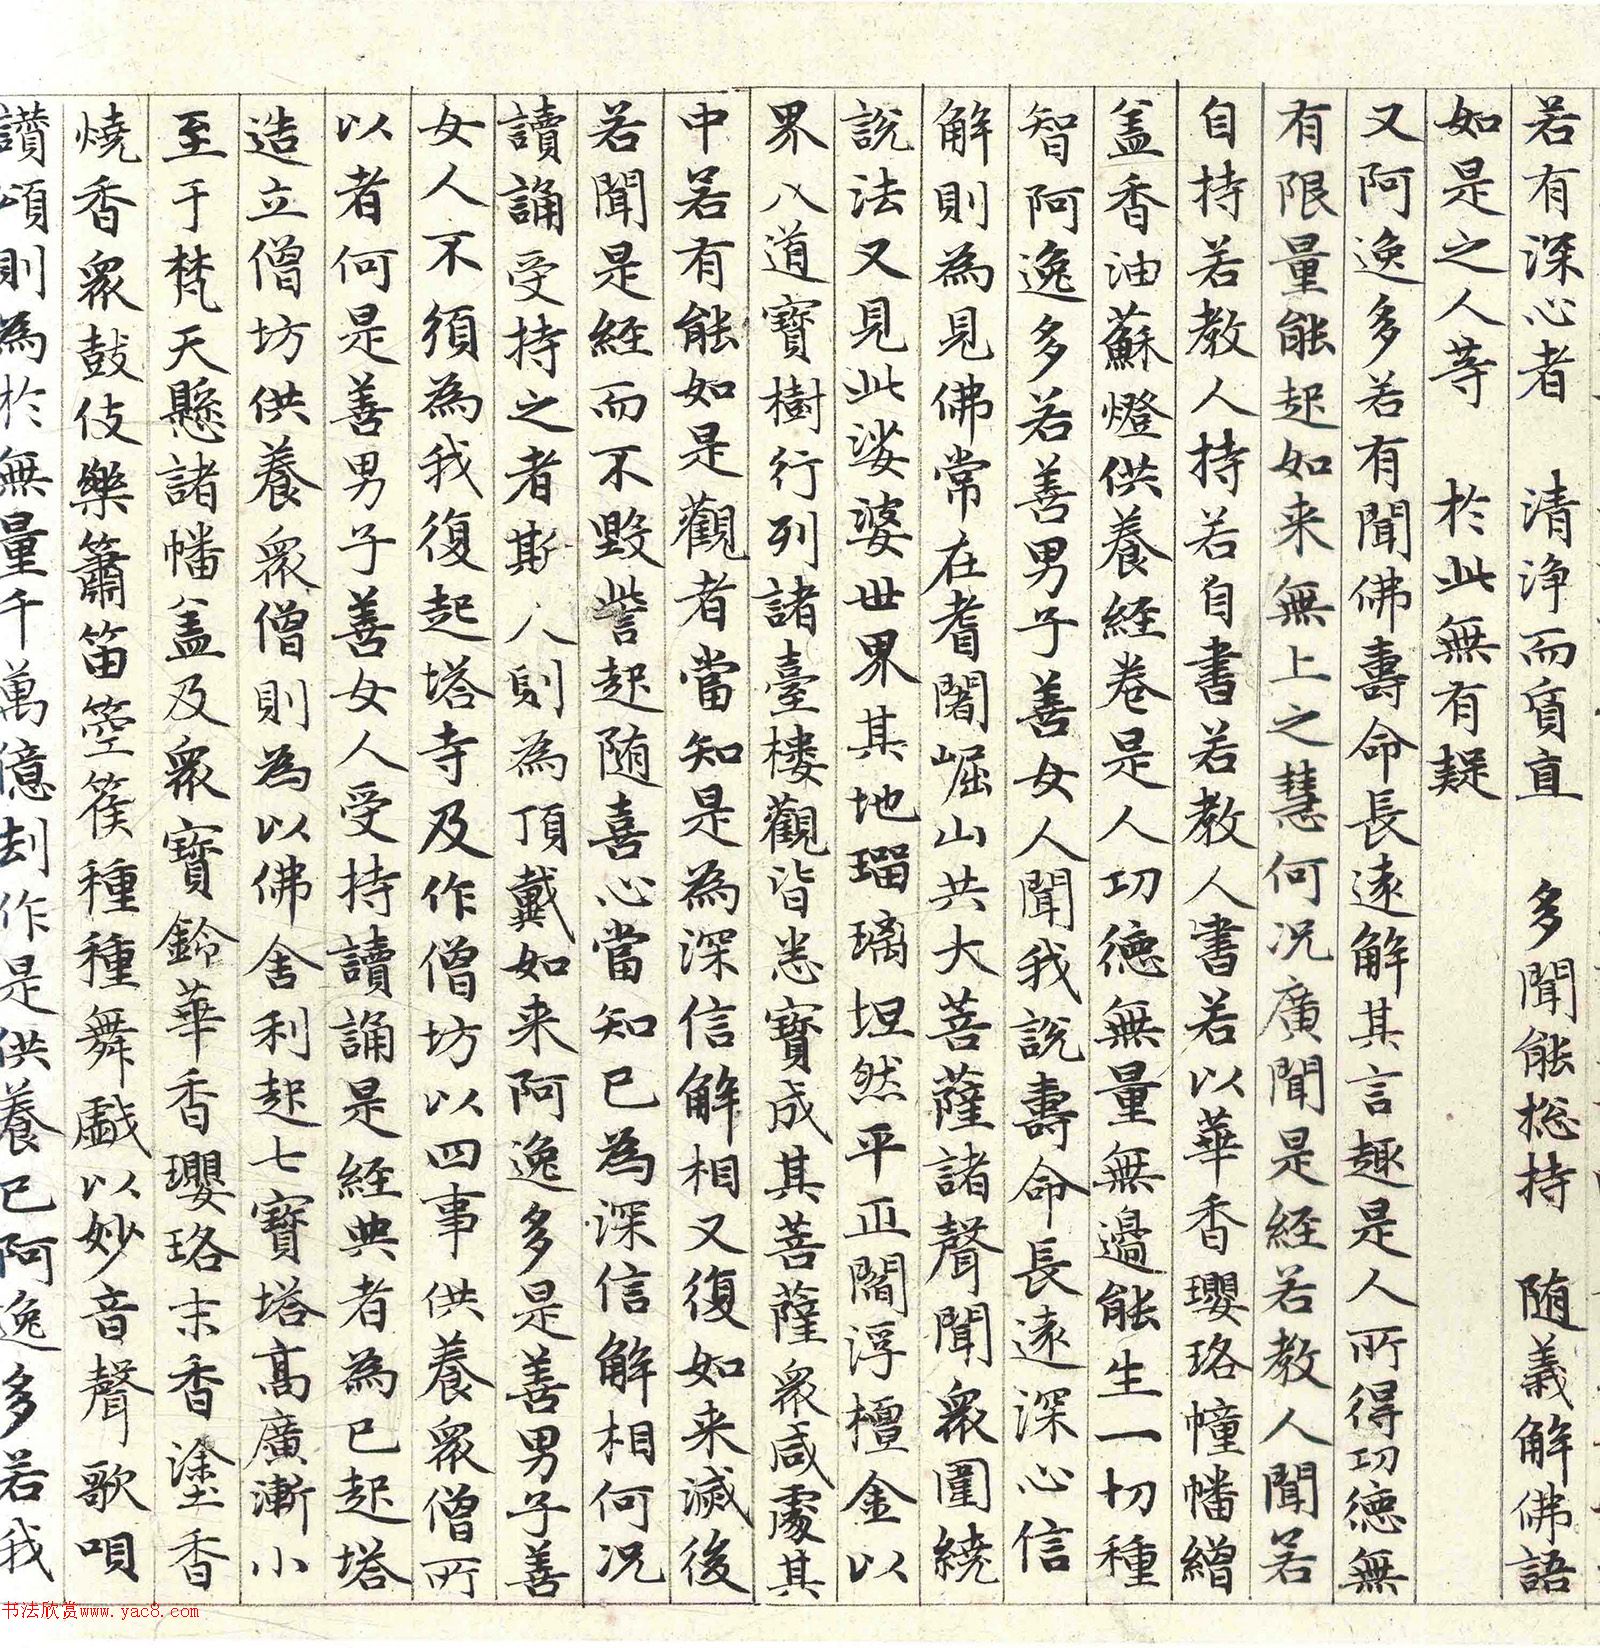 若有深心者 清浄而質直 多聞能捴持 随義解佛語
如是之人等 於此無有疑
又阿逸多若有聞佛壽命長遠解其言趣是人所得功德無
有限量能起如来無上之慧何况廣聞是経若教人聞若
自持若教人持若自書若教人書若以華香瓔珞幢幡繒
盖香油蘇燈供養経卷是人功德無量無邊能生一切種
智阿逸多若善男子善女人聞我說壽命長遠深心信
解則為見佛常在耆闍崛山共大菩薩諸聲聞衆圍繞
說法又見此娑婆世界其地瑠璃坦然平正閻浮檀金以
界八道寳樹行列諸臺樓觀皆悉寳成其菩薩衆咸處其
中若有能如是觀者當知是為深信解相又復如来滅後
若聞是経而不毀訾起随喜心當知已為深信解相何况
讀誦受持之者斯人則為頂戴如来阿逸多是善男子善
女人不須為我復起塔寺及作僧坊以四事供養衆僧所
以者何是善男子善女人受持讀誦是経典者為已起塔
造立僧坊供養衆僧則為以佛舍利起七寳塔高廣漸小
至于梵天懸諸幡盖及衆寳鈴華香瓔珞末香塗香
燒香衆鼓伎樂簫笛箜篌種種舞戲以妙音聲歌唄
讃頌則為於無量千萬億刧作是供養已阿逸多若我
书法欣赏www.yac8.com